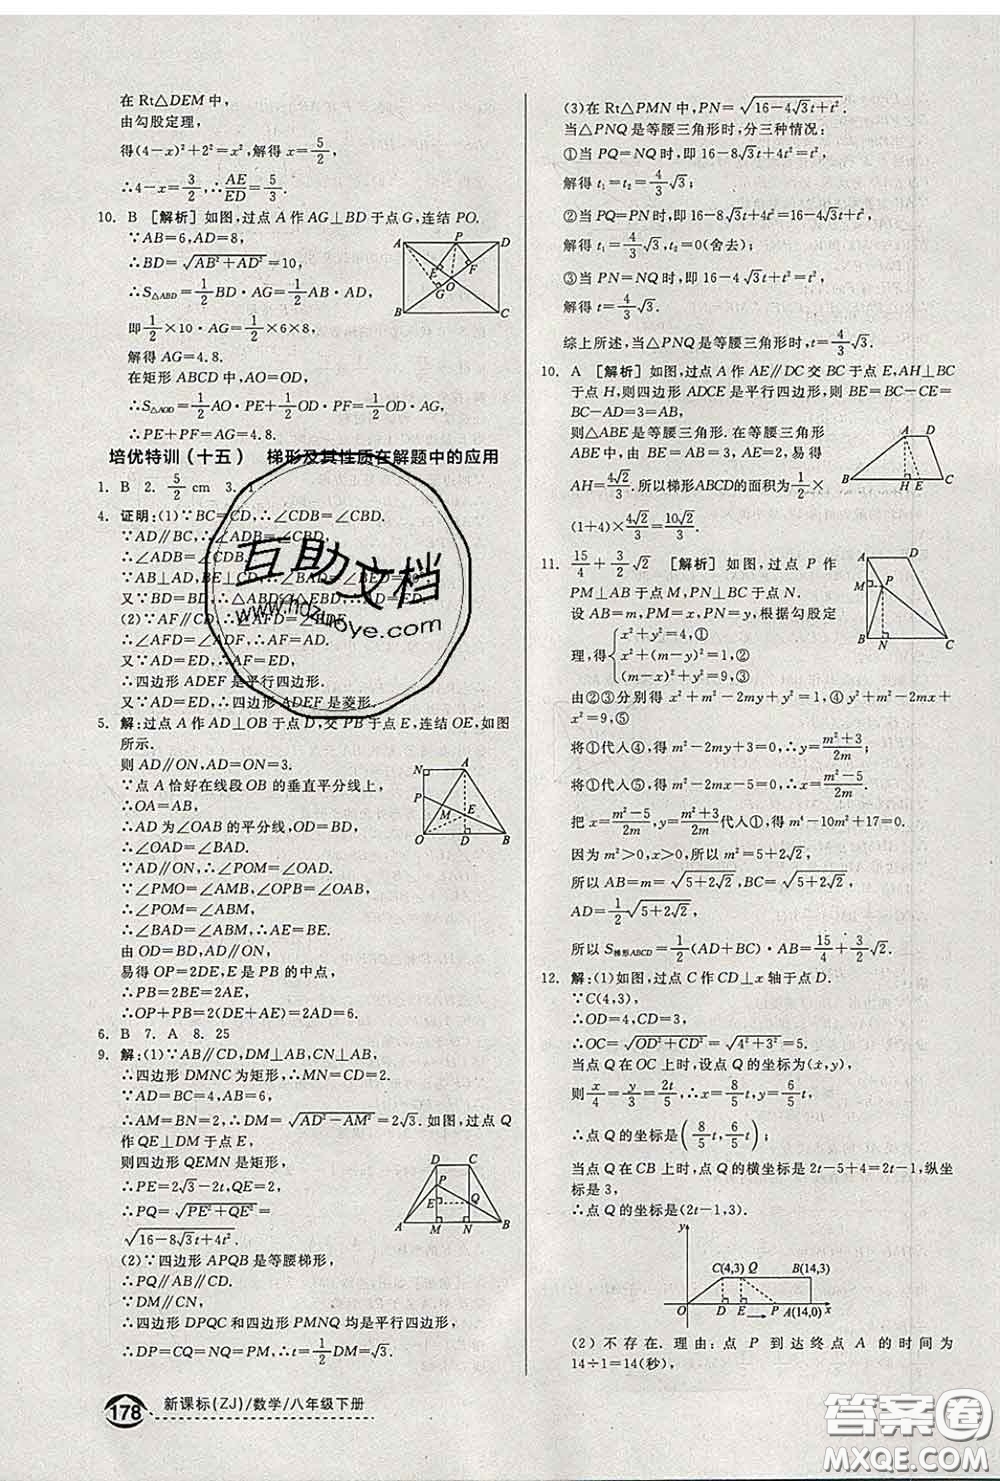 在 Rt△DEM 中,
由勾股定理,
得(4-x)²+2²=x²,解得 x=5/2,
∴4-x=3/2,∴AE/ED=5/3.
10. B [解析]如图,过点 A 作 AG⊥BD 于点 G,连结 PO.
∵AB=6,AD=8,
∴BD=√(AB²+AD²)=10,
∴S△ABD=1/2BD·AG=1/2AB·AD,
即1/2×10·AG=1/2×6×8,
解得 AG=4.8.
在矩形 ABCD 中,AO=OD,
∴S△AOD=1/2AO·PE+1/2OD·PF=1/2OD·AG,
∴PE+PF=AG=4.8.
A P D E F O G B C
培优特训(十五) 梯形及其性质在解题中的应用
1. B 2. 5/2 cm 3. 1
4. 证明:(1)∵BC=CD,∴∠CDB=∠CBD.
∵AD∥BC,∴∠ADB=∠CBD=∠CDB.
又∵BD=BD,∴△ABD≌△EBD,∴AD=ED.
(2)∵AF∥CD,∴∠AFD=∠EDF,
∴∠AFD=∠ADF,∴AF=AD.
又∵AD=ED,∴AF=ED,
∴四边形 ADEF 是平行四边形.
又∵AD=ED,∴四边形 ADEF 是菱形.
5. 解:过点 A 作 AD⊥OB 于点 D,交 PB 于点 E,连结 OE,如图
所示.
则 AD∥ON,AD=ON=3.
∵点 A 恰好在线段 OB 的垂直平分线上,
∴OA=AB,
∴AD 为∠OAB 的平分线,
∴∠OAD=∠BAD.
∵AD∥ON,∴∠POM=∠OAD.
∵∠PMO=∠AMB,∠OPB=∠OAB,
∴∠POM=∠ABM,
∴∠BAD=∠ABM,∴AE=BE.
由 OD=BD,AD∥ON,
易得 OP=2DE,E 是 PB 的中点,
∴PB=2BE=2AE,
∴OP+PB=2(DE+AE)=2AD=6.
N A P M E O D B
6. B 7. A 8. 25
9. 解:(1)∵AB∥CD,DM⊥AB,CN⊥AB,
∴四边形 DMNC 为矩形,∴MN=CD=2.
∵AD=BC=4,AB=6,
∴AM=BN=2,∴DM=√(AD²-AM²)=2√3.如图,过点 Q
作 QE⊥DM 于点 E,
则四边形 QEMN 是矩形,
∴PE=2√3-2t,QE=2,
∴PQ=√(PE²+QE²)=
√(16-8√3t+4t²).
(2)∵四边形 APQB 是等腰梯形,
∴PQ∥AB∥CD.
∵DM∥CN,
∴四边形 DPQC 和四边形 PMNQ 均是平行四边形,
∴DP=CQ=NQ=PM,∴t=√3.
D C P E Q A M N B
(3)在 Rt△PMN 中,PN=√(16-4√3t+t²).
当△PNQ 是等腰三角形时,分三种情况:
①当 PQ=NQ 时,即 16-8√3t+4t²=t²,
解得 t₁=t₂=4/3√3;
②当 PQ=PN 时,即 16-8√3t+4t²=16-4√3t+t²,
解得 t₁=4/3√3,t₂=0(舍去);
③当 PN=NQ 时,即 16-4√3t+t²=t²,
解得 t=4/3√3.
综上所述,当△PNQ 是等腰三角形时,t=4/3√3.
10. A [解析]如图,过点 A 作 AE∥DC 交 BC 于点 E,AH⊥BC
于点 H,则四边形 ADCE 是平行四边形,则 BE=BC-CE=
BC-AD=3=AB,
则△ABE 是等腰三角形,易得
AH=4√2/3.所以梯形ABCD的面积为1/2×
(1+4)×4√2/3=10√2/3.
A D B H E C
11. 15/4+3/2√2 [解析]如图,过点 P 作
PM⊥AB 于点 M,PN⊥BC 于点 N.
设 AB=m,PM=x,PN=y,根据勾股定
理,得{x²+y²=4,①
x²+(m-y)²=9,②
(m-x)²+y²=9,③
由②③分别得 x²+m²-2my+y²=9,④ m²-2mx+x²+y²=9,⑤
将①代入④,得 m²-2my=5,∴y=(m²-5)/2m;
A D M P B N C
因为 m²>0,x>0,所以 m²=5+2√2,
所以 AB=m=√(5+2√2),BC=√(5+2√2),
AD=1/2√(5+2√2),
所以 S梯形ABCD=1/2(AD+BC)·AB=15/4+3/2√2.
12. 解:(1)如图,过点 C 作 CD⊥x 轴于点 D.
∵C(4,3),
∴OD=4,CD=3,
∴OC=√(OD²+CD²)=√(4²+3²)=5.
当点 Q 在 OC 上时,设点 Q 的坐标为(x,y),
则x/4=y/3=2t/5,∴x=8/5t,y=6/5t,
∴点 Q 的坐标是(8/5t,6/5t);
当点 Q 在 CB 上时,点 Q 的横坐标为 2t-5+4=2t-1,纵坐
标是 3,
∴点 Q 的坐标为(2t-1,3).
y C(4,3) Q B(14,3) O D E P A(14,0) x
(2)不存在.理由:点 P 到达终点 A 的时间为
14÷1=14(秒),
178 新课标(ZJ)/数学/八年级下册
互助文档
www.hdzuoye.com
答案圈
MXQE.COM